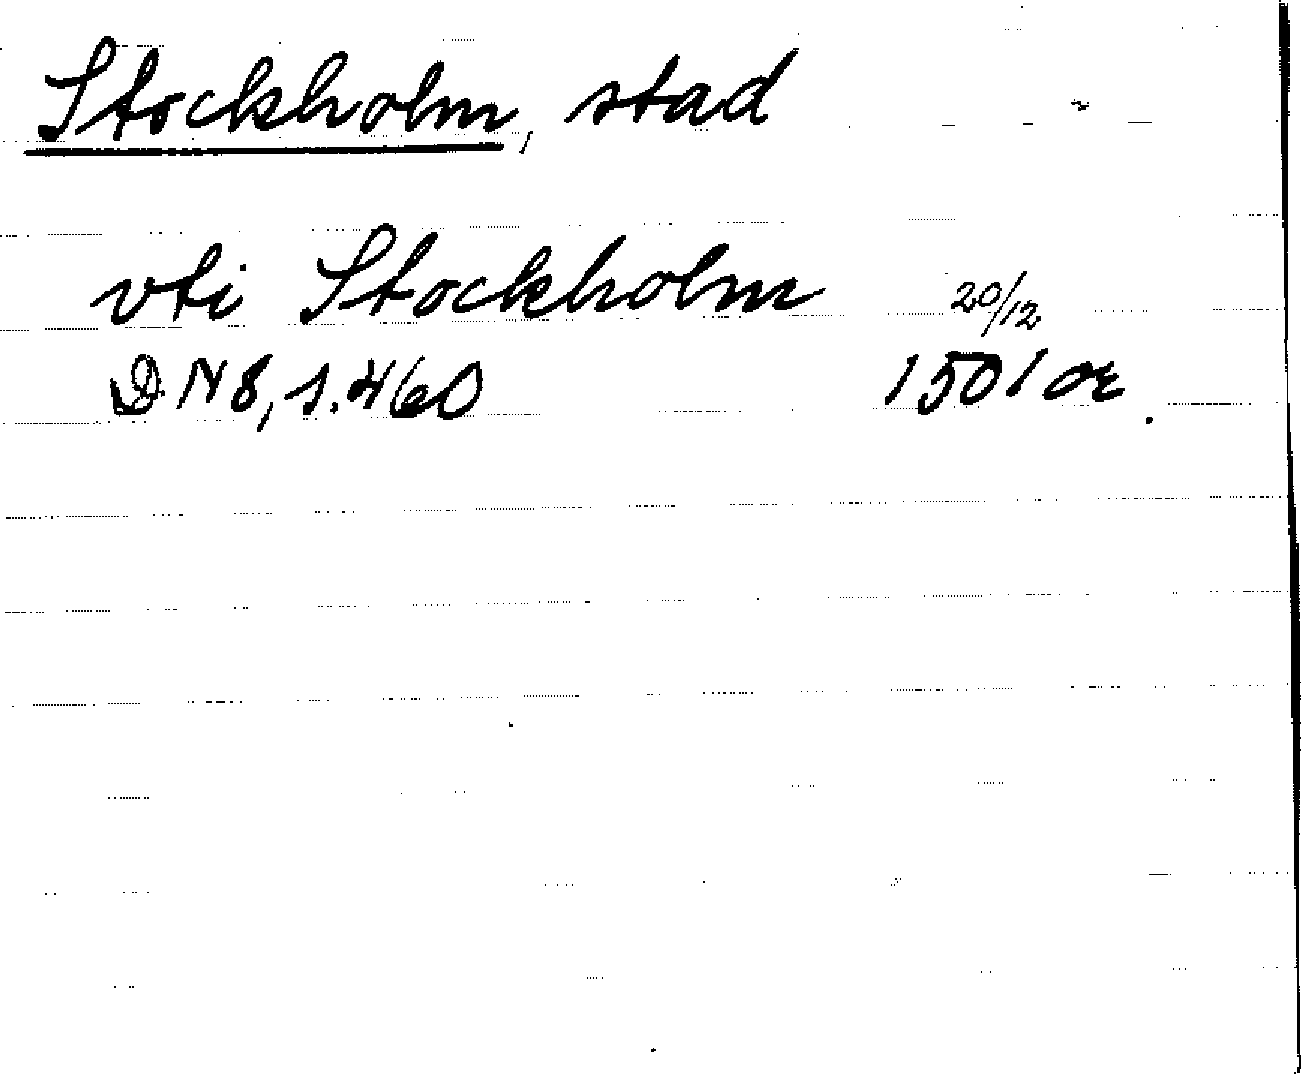 Stockholm, stad
vti Stockholm 20/12
D N8, s. 460 1501 or.